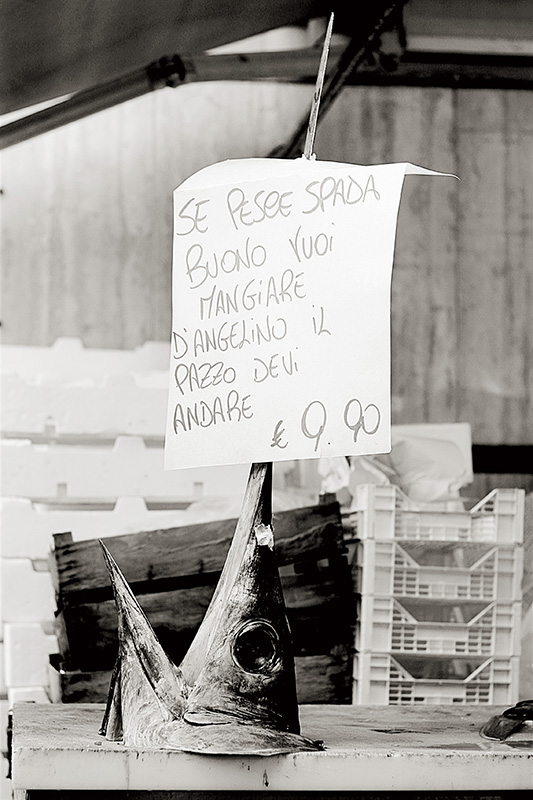 SE PESCE SPADA
BUONO VUOI
MANGIARE
D'ANGELINO IL
PAZZO DEVI
ANDARE
€ 9.90